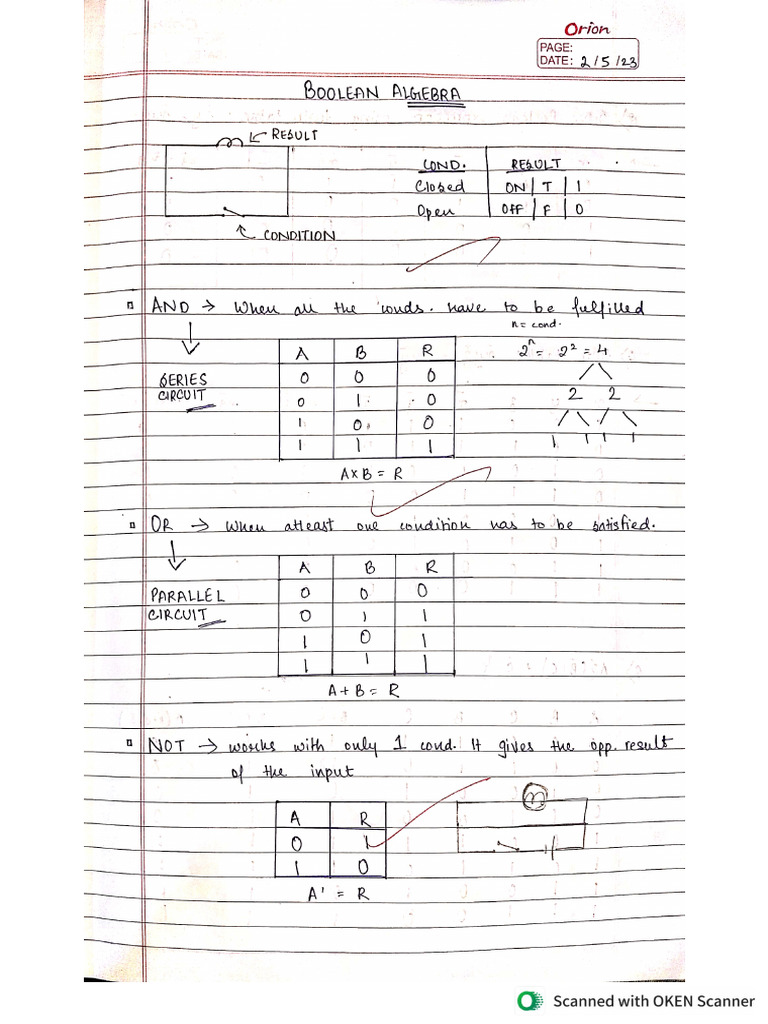 Orion
PAGE:
DATE: 2/5/23
BOOLEAN ALGEBRA
RESULT
COND. RESULT
Closed ON | T | 1
Open OFF | F | 0
CONDITION
AND → When all the conds. have to be fulfilled
n = cond.
A B R 2ⁿ = 2² = 4
SERIES 0 0 0
CIRCUIT 0 1 0 2 2
1 0 0
1 1 1 1 1 1 1
A×B = R
OR → When atleast one condition has to be satisfied.
A B R
PARALLEL 0 0 0
CIRCUIT 0 1 1
1 0 1
1 1 1
A+B = R
NOT → works with only 1 cond. It gives the opp. result
of the input
A R
0 1
1 0
A' = R
Scanned with OKEN Scanner